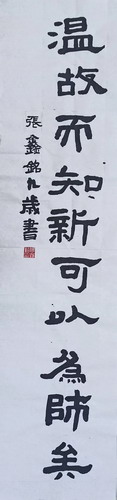 温故而知新可以為師矣
張鑫銘九歲書